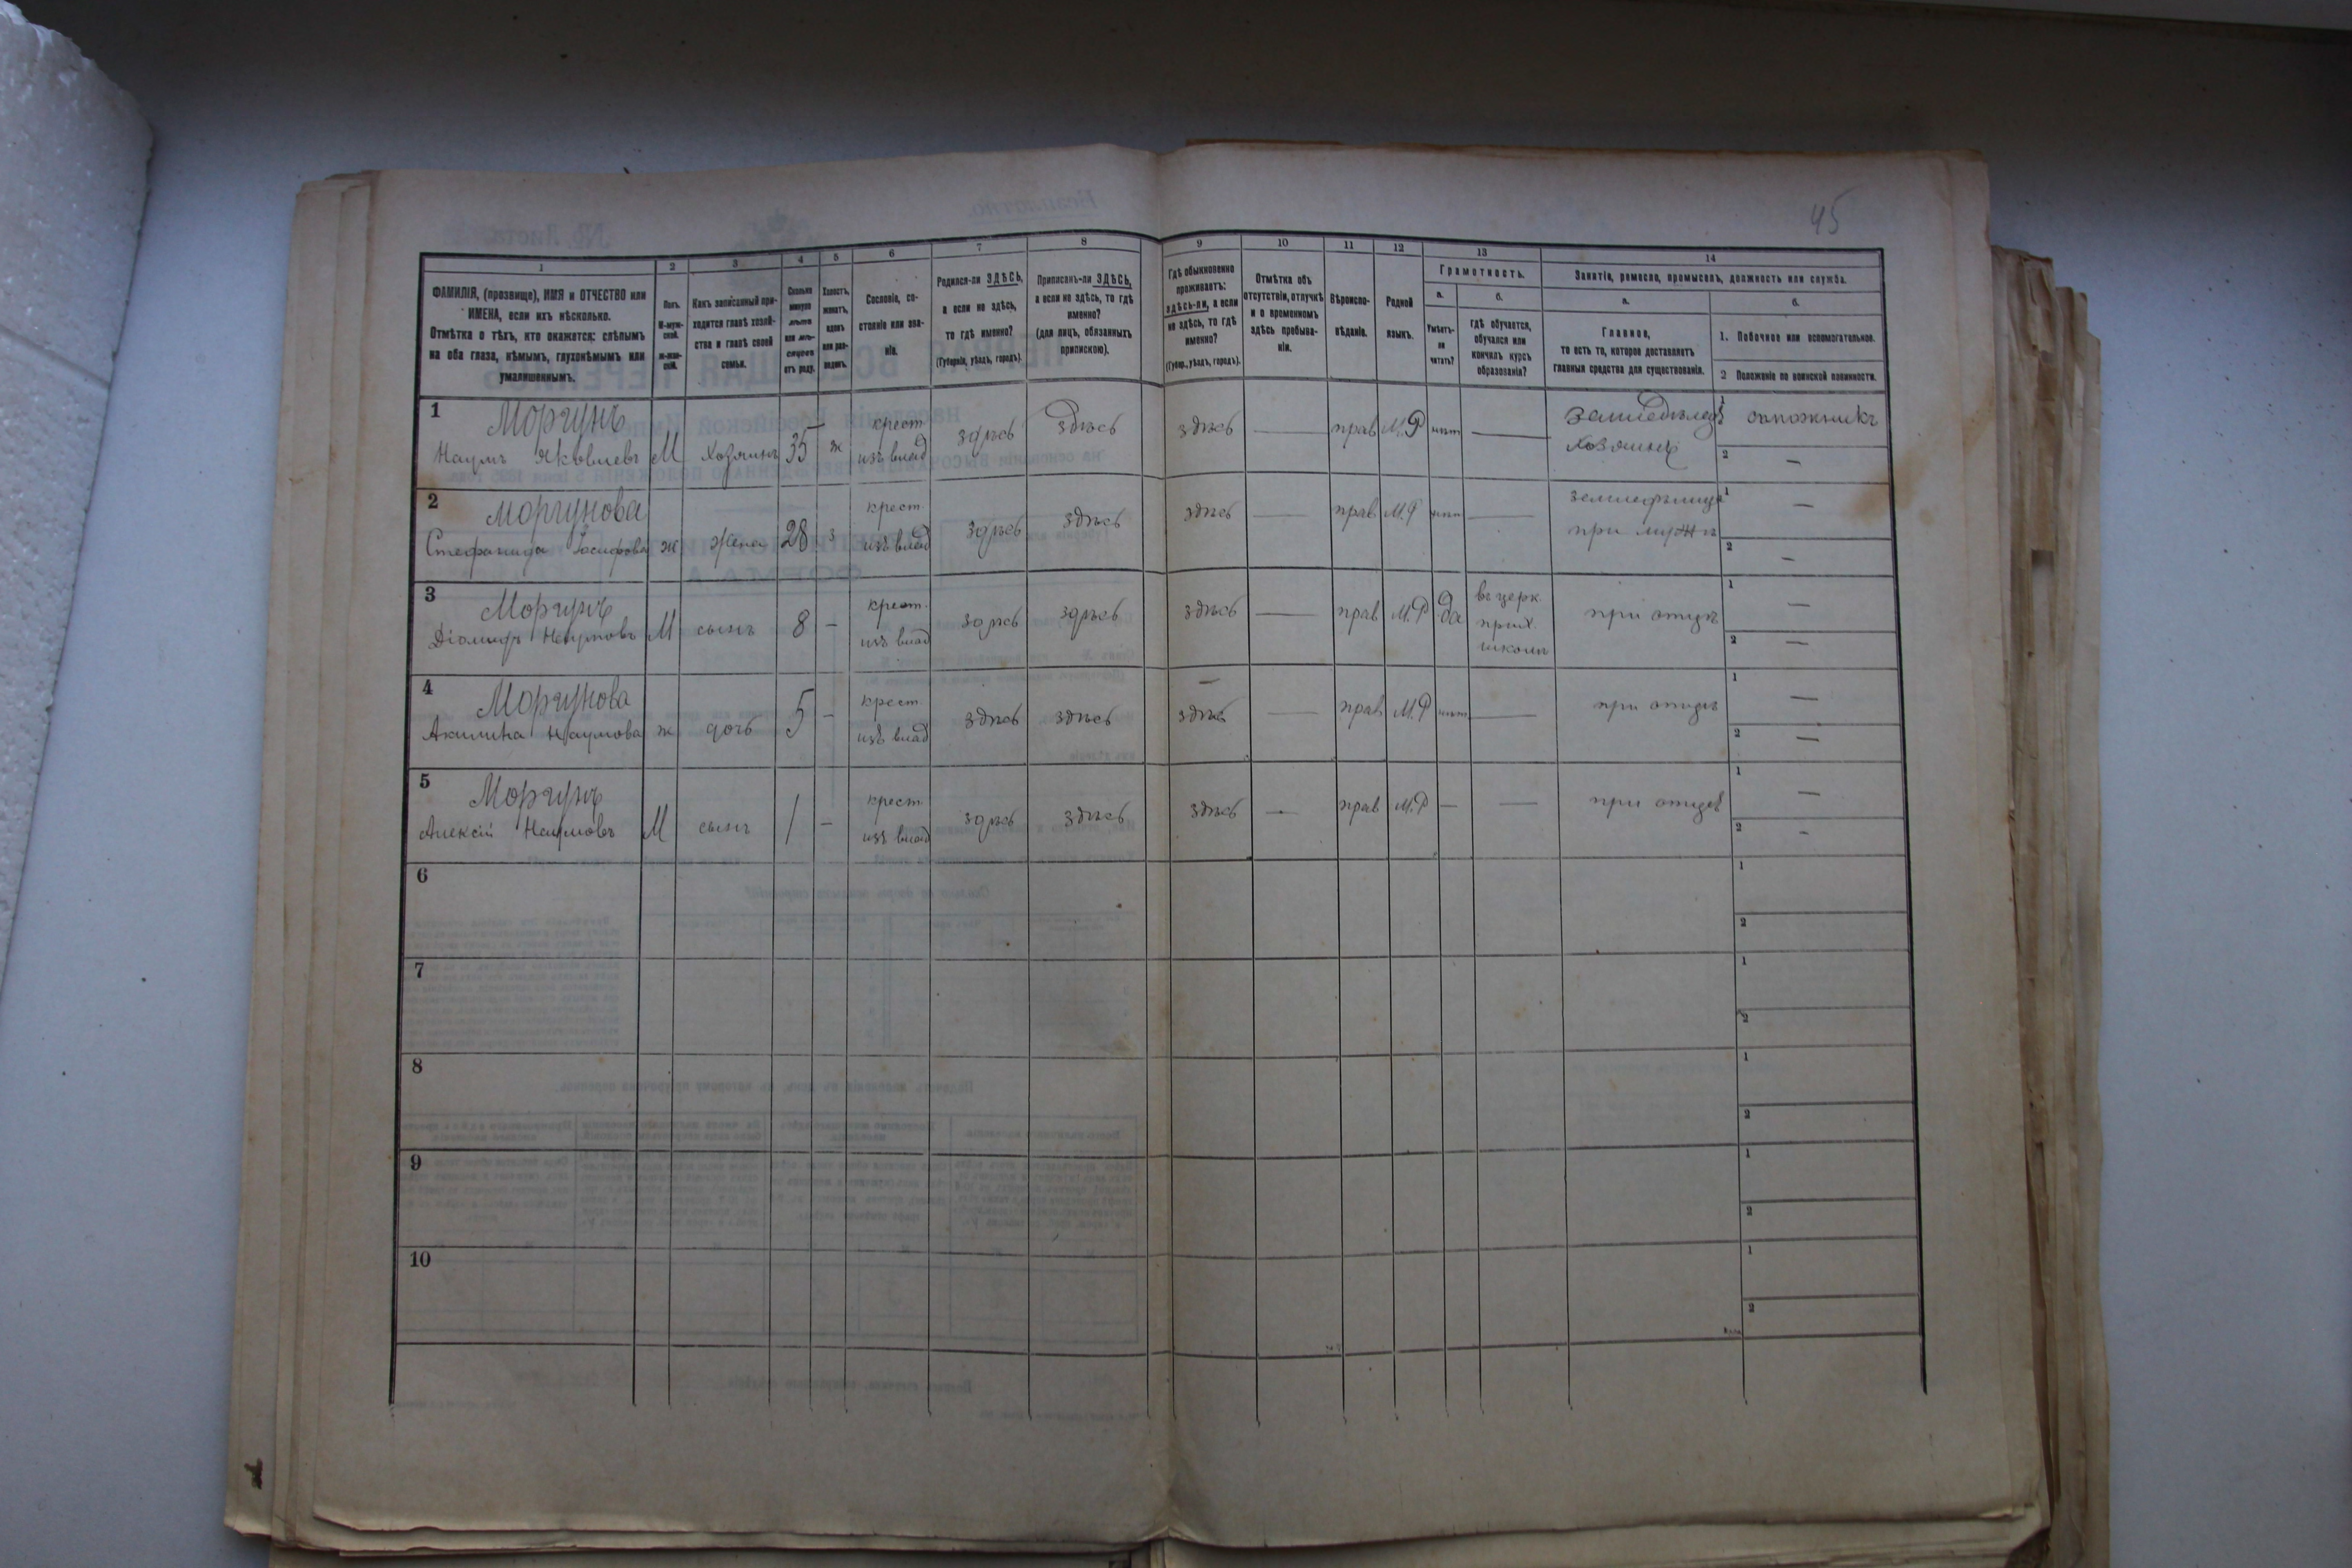 45
1 2 3 4 5 6 7 8 9 10 11 12 13 14
ФАМИЛІЯ, (прозвище), ИМЯ и ОТЧЕСТВО или
ИМЕНА, если ихъ нѣсколько.
Отмѣтка о тѣхъ, кто окажется: слѣпымъ
на оба глаза, нѣмымъ, глухонѣмымъ или
умалишеннымъ.
Полъ.
М-муж-
ской.
ж-жен-
скій.
Какъ записанный при-
ходится главѣ хозяй-
ства и главѣ своей
семьи.
Сколько
минуло
лѣтъ
или мѣ-
сяцевъ
отъ роду.
Холостъ,
женатъ,
вдовъ
или раз-
веденъ.
Сословіе, со-
стояніе или зва-
ніе.
Родился-ли ЗДѢСЬ,
а если не здѣсь,
то гдѣ именно?
(Губернія, уѣздъ, городъ).
Приписанъ-ли ЗДѢСЬ,
а если не здѣсь, то гдѣ
именно?
(для лицъ, обязанныхъ
припискою).
Гдѣ обыкновенно
проживаетъ:
здѣсь-ли, а если
не здѣсь, то гдѣ
именно?
(Губер., уѣздъ, городъ).
Отмѣтка объ
отсутствіи, отлучкѣ
и о временномъ
здѣсь пребыва-
ніи.
Вѣроиспо-
вѣданіе.
Родной
языкъ.
Грамотность.
а.
Умѣетъ-
ли
читать?
б.
гдѣ обучается,
обучался или
кончилъ курсъ
образованія?
Занятіе, ремесло, промыселъ, должность или служба.
а.
Главное,
то есть то, которое доставляетъ
главныя средства для существованія.
б.
1. Побочное или вспомогательное.
2 Положеніе по воинской повинности.
1 Моргунъ
Наумъ Яковлевъ М Хозяинъ 35 ж крест. изъ влад здѣсь здѣсь здѣсь — прав М.Р нѣт — земледѣлец хозяинъ 1 сапожникъ
2 —
2 Моргунова
Стефанида Іосифова ж жена 28 з крест. изъ влад здѣсь здѣсь здѣсь — прав М.Р нѣт — земледѣлица при мужѣ 1 —
2 —
3 Моргунъ
Діомидъ Наумовъ М сынъ 8 – крест. изъ влад здѣсь здѣсь здѣсь — прав М.Р да въ церк. прих. школѣ при отцѣ 1 —
2 —
4 Моргунова
Акилина Наумова ж дочь 5 – крест. изъ влад здѣсь здѣсь здѣсь — прав М.Р нѣт — при отцѣ 1 —
2 —
5 Моргунъ
Алексій Наумовъ М сынъ 1 – крест. изъ влад здѣсь здѣсь здѣсь — прав М.Р — — при отцѣ 1 —
2 –
6 1
2
7 1
2
8 1
2
9 1
2
10 1
2